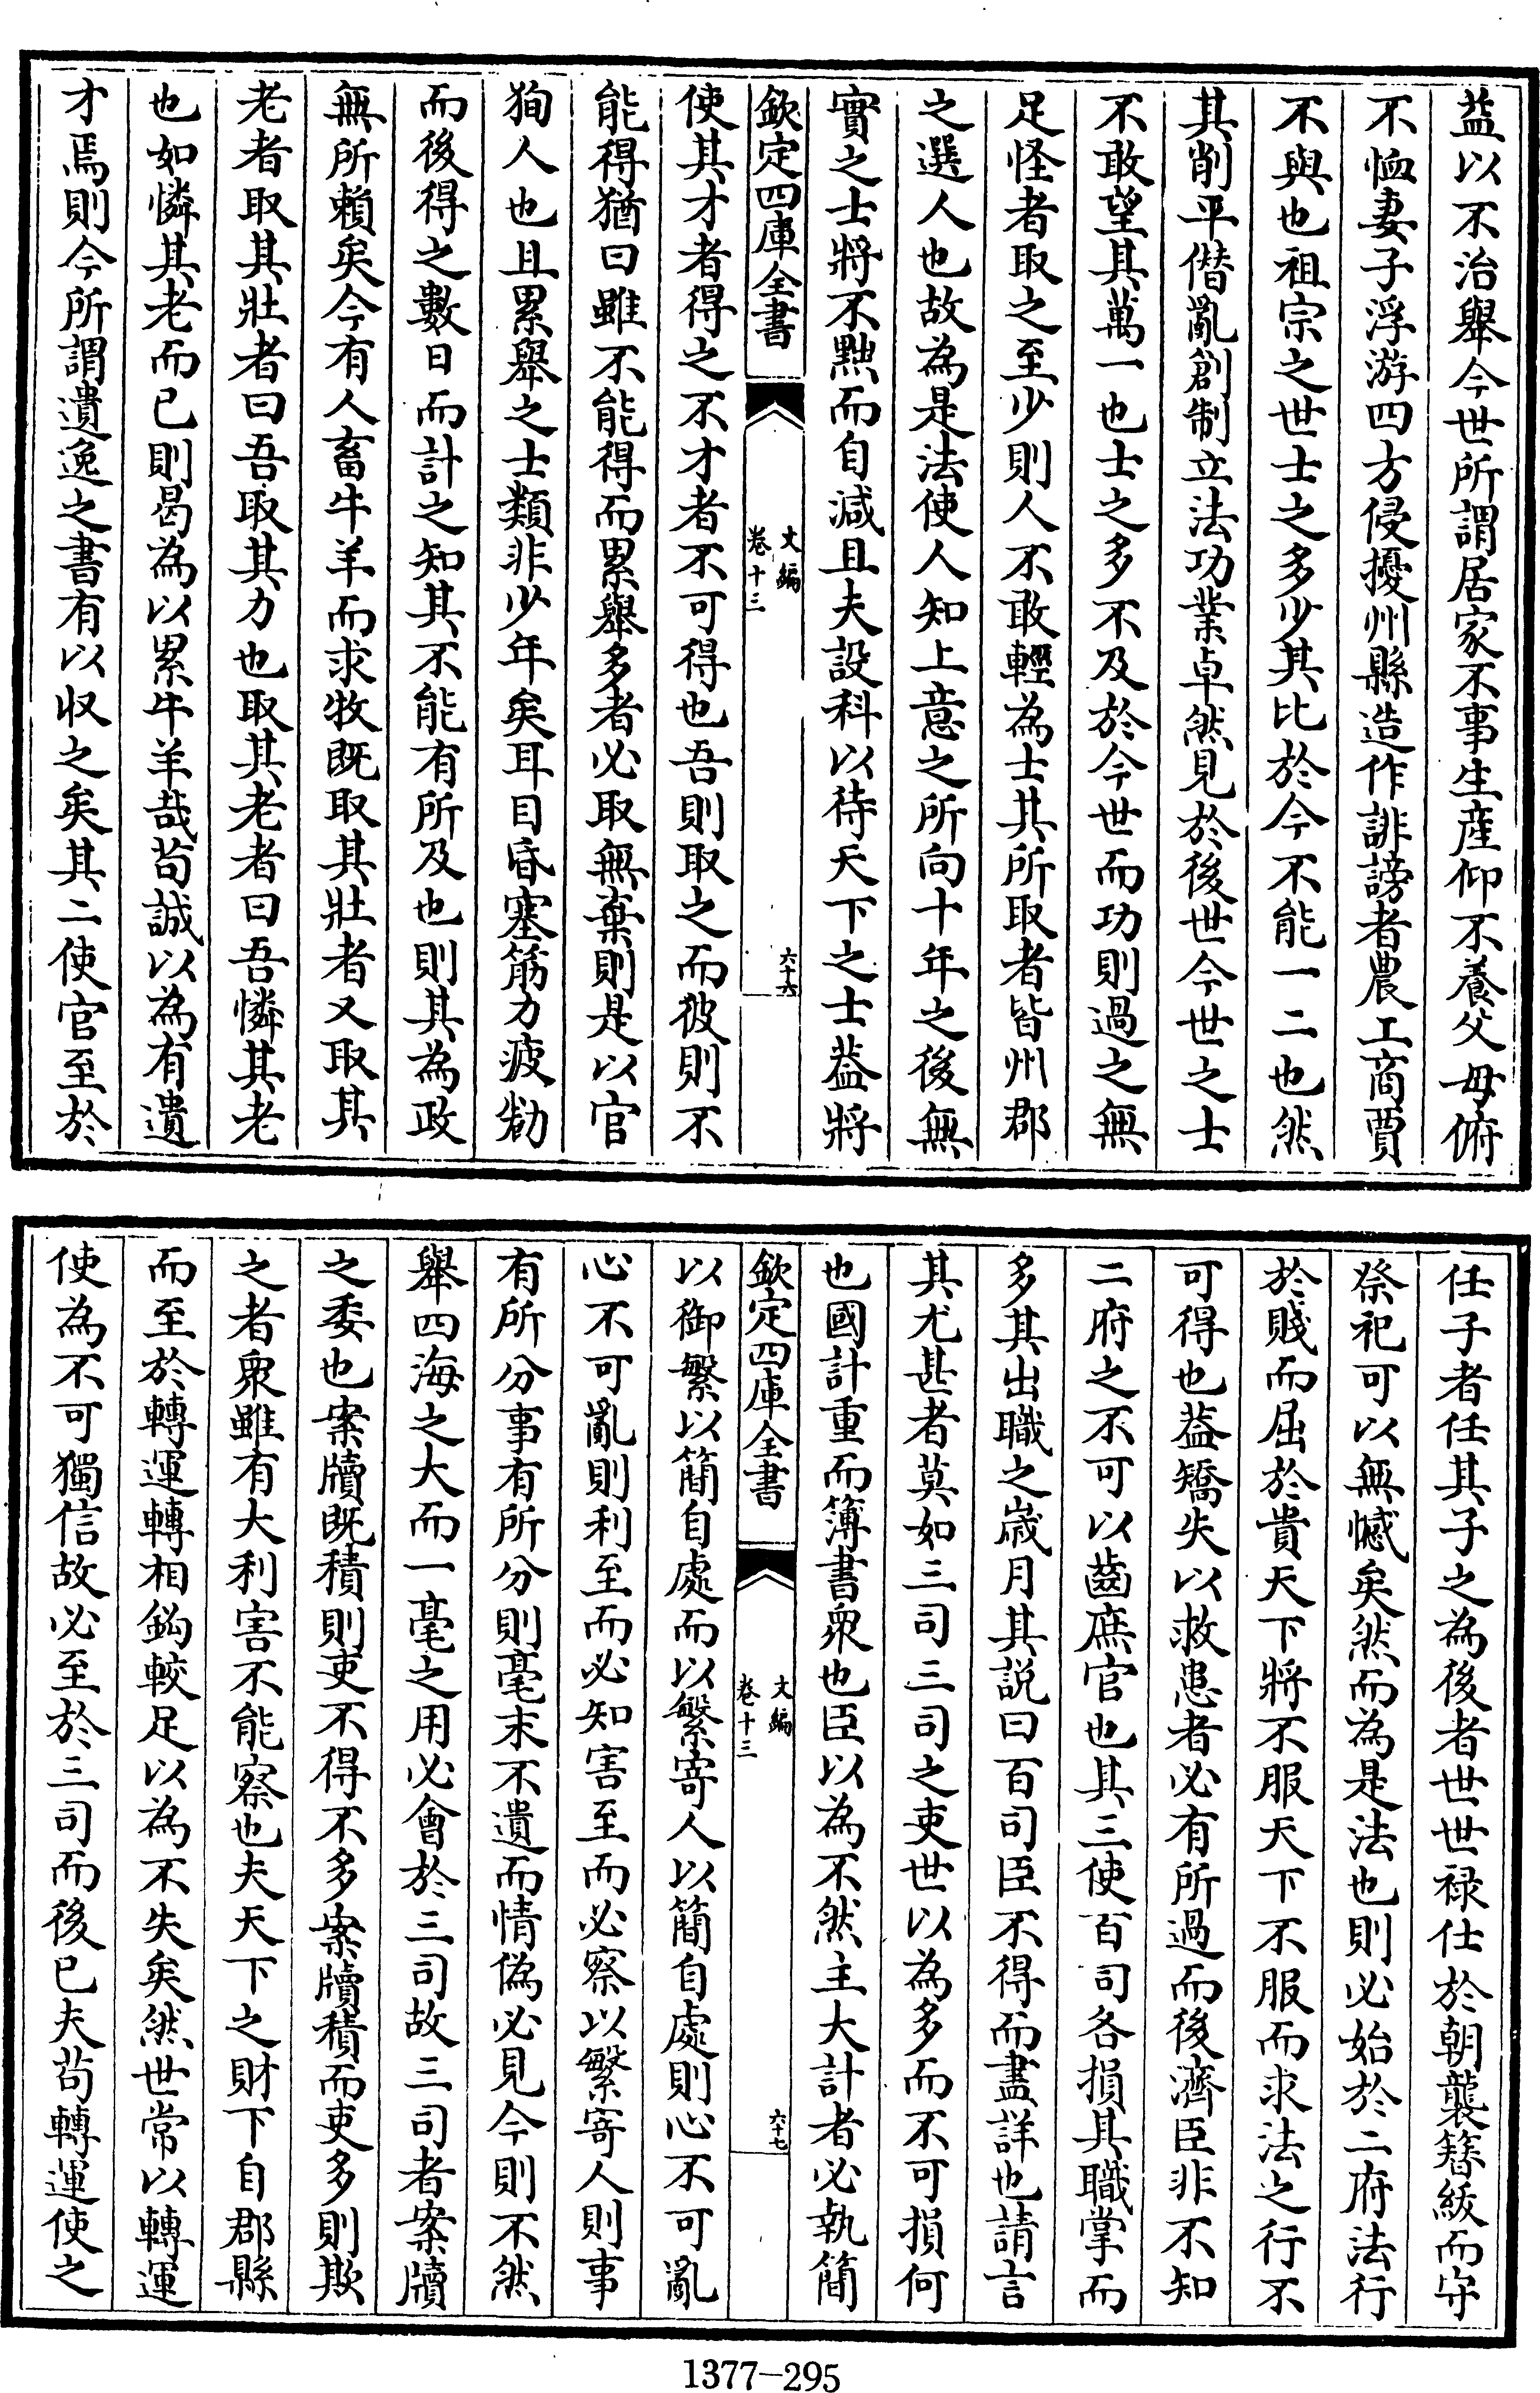 益以不治舉今世所謂居家不事生産仰不養父母俯
不恤妻子浮游四方侵擾州縣造作誹謗者農工商賈
不與也祖宗之世士之多少其比於今不能一二也然
其削平僭亂創制立法功業卓然見於後世今世之士
不敢望其萬一也士之多不及於今世而功則過之無
足怪者取之至少則人不敢輕為士其所取者皆州郡
之選人也故為是法使人知上意之所向十年之後無
實之士將不黜而自減且夫設科以待天下之士益將
欽定四庫全書
文編
卷十三
六十六
使其才者得之不才者不可得也吾則取之而彼則不
能得猶曰雖不能得而累舉多者必取無棄則是以官
狥人也且累舉之士類非少年矣耳目昏塞筋力疲勌
而後得之數日而計之知其不能有所及也則其為政
無所賴矣今有人畜牛羊而求牧既取其壯者又取其
老者取其壯者曰吾取其力也取其老者曰吾憐其老
也如憐其老而已則曷為以累牛羊哉茍誠以為有遺
才焉則今所謂遺逸之書有以収之矣其二使官至於
任子者任其子之為後者世世禄仕於朝襲簪紱而守
祭祀可以無憾矣然而為是法也則必始於二府法行
於賤而屈於貴天下將不服天下不服而求法之行不
可得也益矯失以救患者必有所過而後濟臣非不知
二府之不可以齒庶官也其三使百司各損其職掌而
多其出職之歲月其説曰百司臣不得而盡詳也請言
其尤甚者莫如三司三司之吏世以為多而不可損何
也國計重而簿書衆也臣以為不然主大計者必執簡
欽定四庫全書
文編
卷十三
六十七
以御繁以簡自處而以繁寄人以簡自處則心不可亂
心不可亂則利至而必知害至而必察以繁寄人則事
有所分事有所分則毫末不遺而情偽必見今則不然
舉四海之大而一毫之用必會於三司故三司者案牘
之委也案牘既積則吏不得不多案牘積而吏多則欺
之者衆雖有大利害不能察也夫天下之財下自郡縣
而至於轉運轉相鈎較足以為不失矣然世常以轉運
使為不可獨信故必至於三司而後已夫茍轉運使之
1377-295